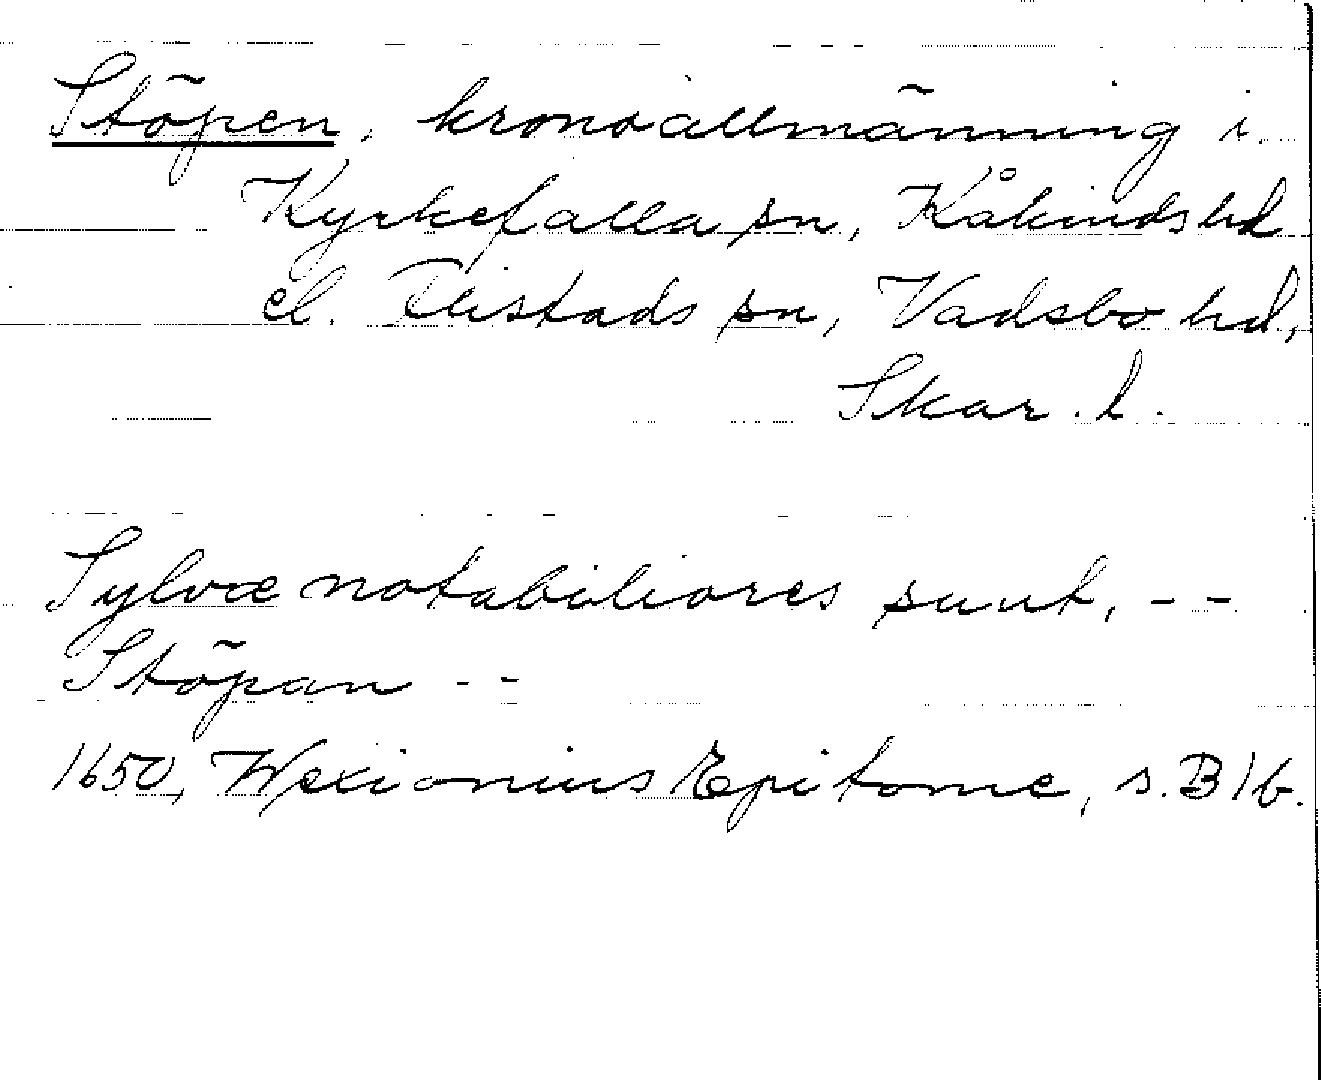 Stöpen, kronoallmänning i
Kyrkefalla sn, Kåkinds hd
el. Flistads sn, Vadsbo hd,
Skar. l.
Sylvæ notabiliores sunt, --
Stöpan --
1650, Wexionius Epitome, s. B 1 b.